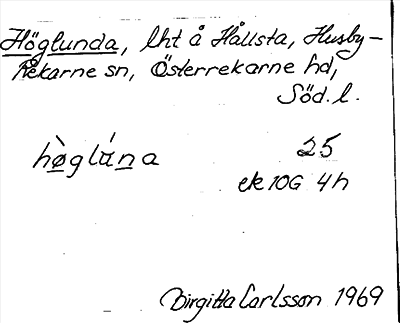 Höglunda, lht å Hållsta, Husby-
Rekarne sn, Österrekarne hd,
Söd. l.
hø̀glúna 25
ek 10G 4h
Birgitta Carlsson 1969